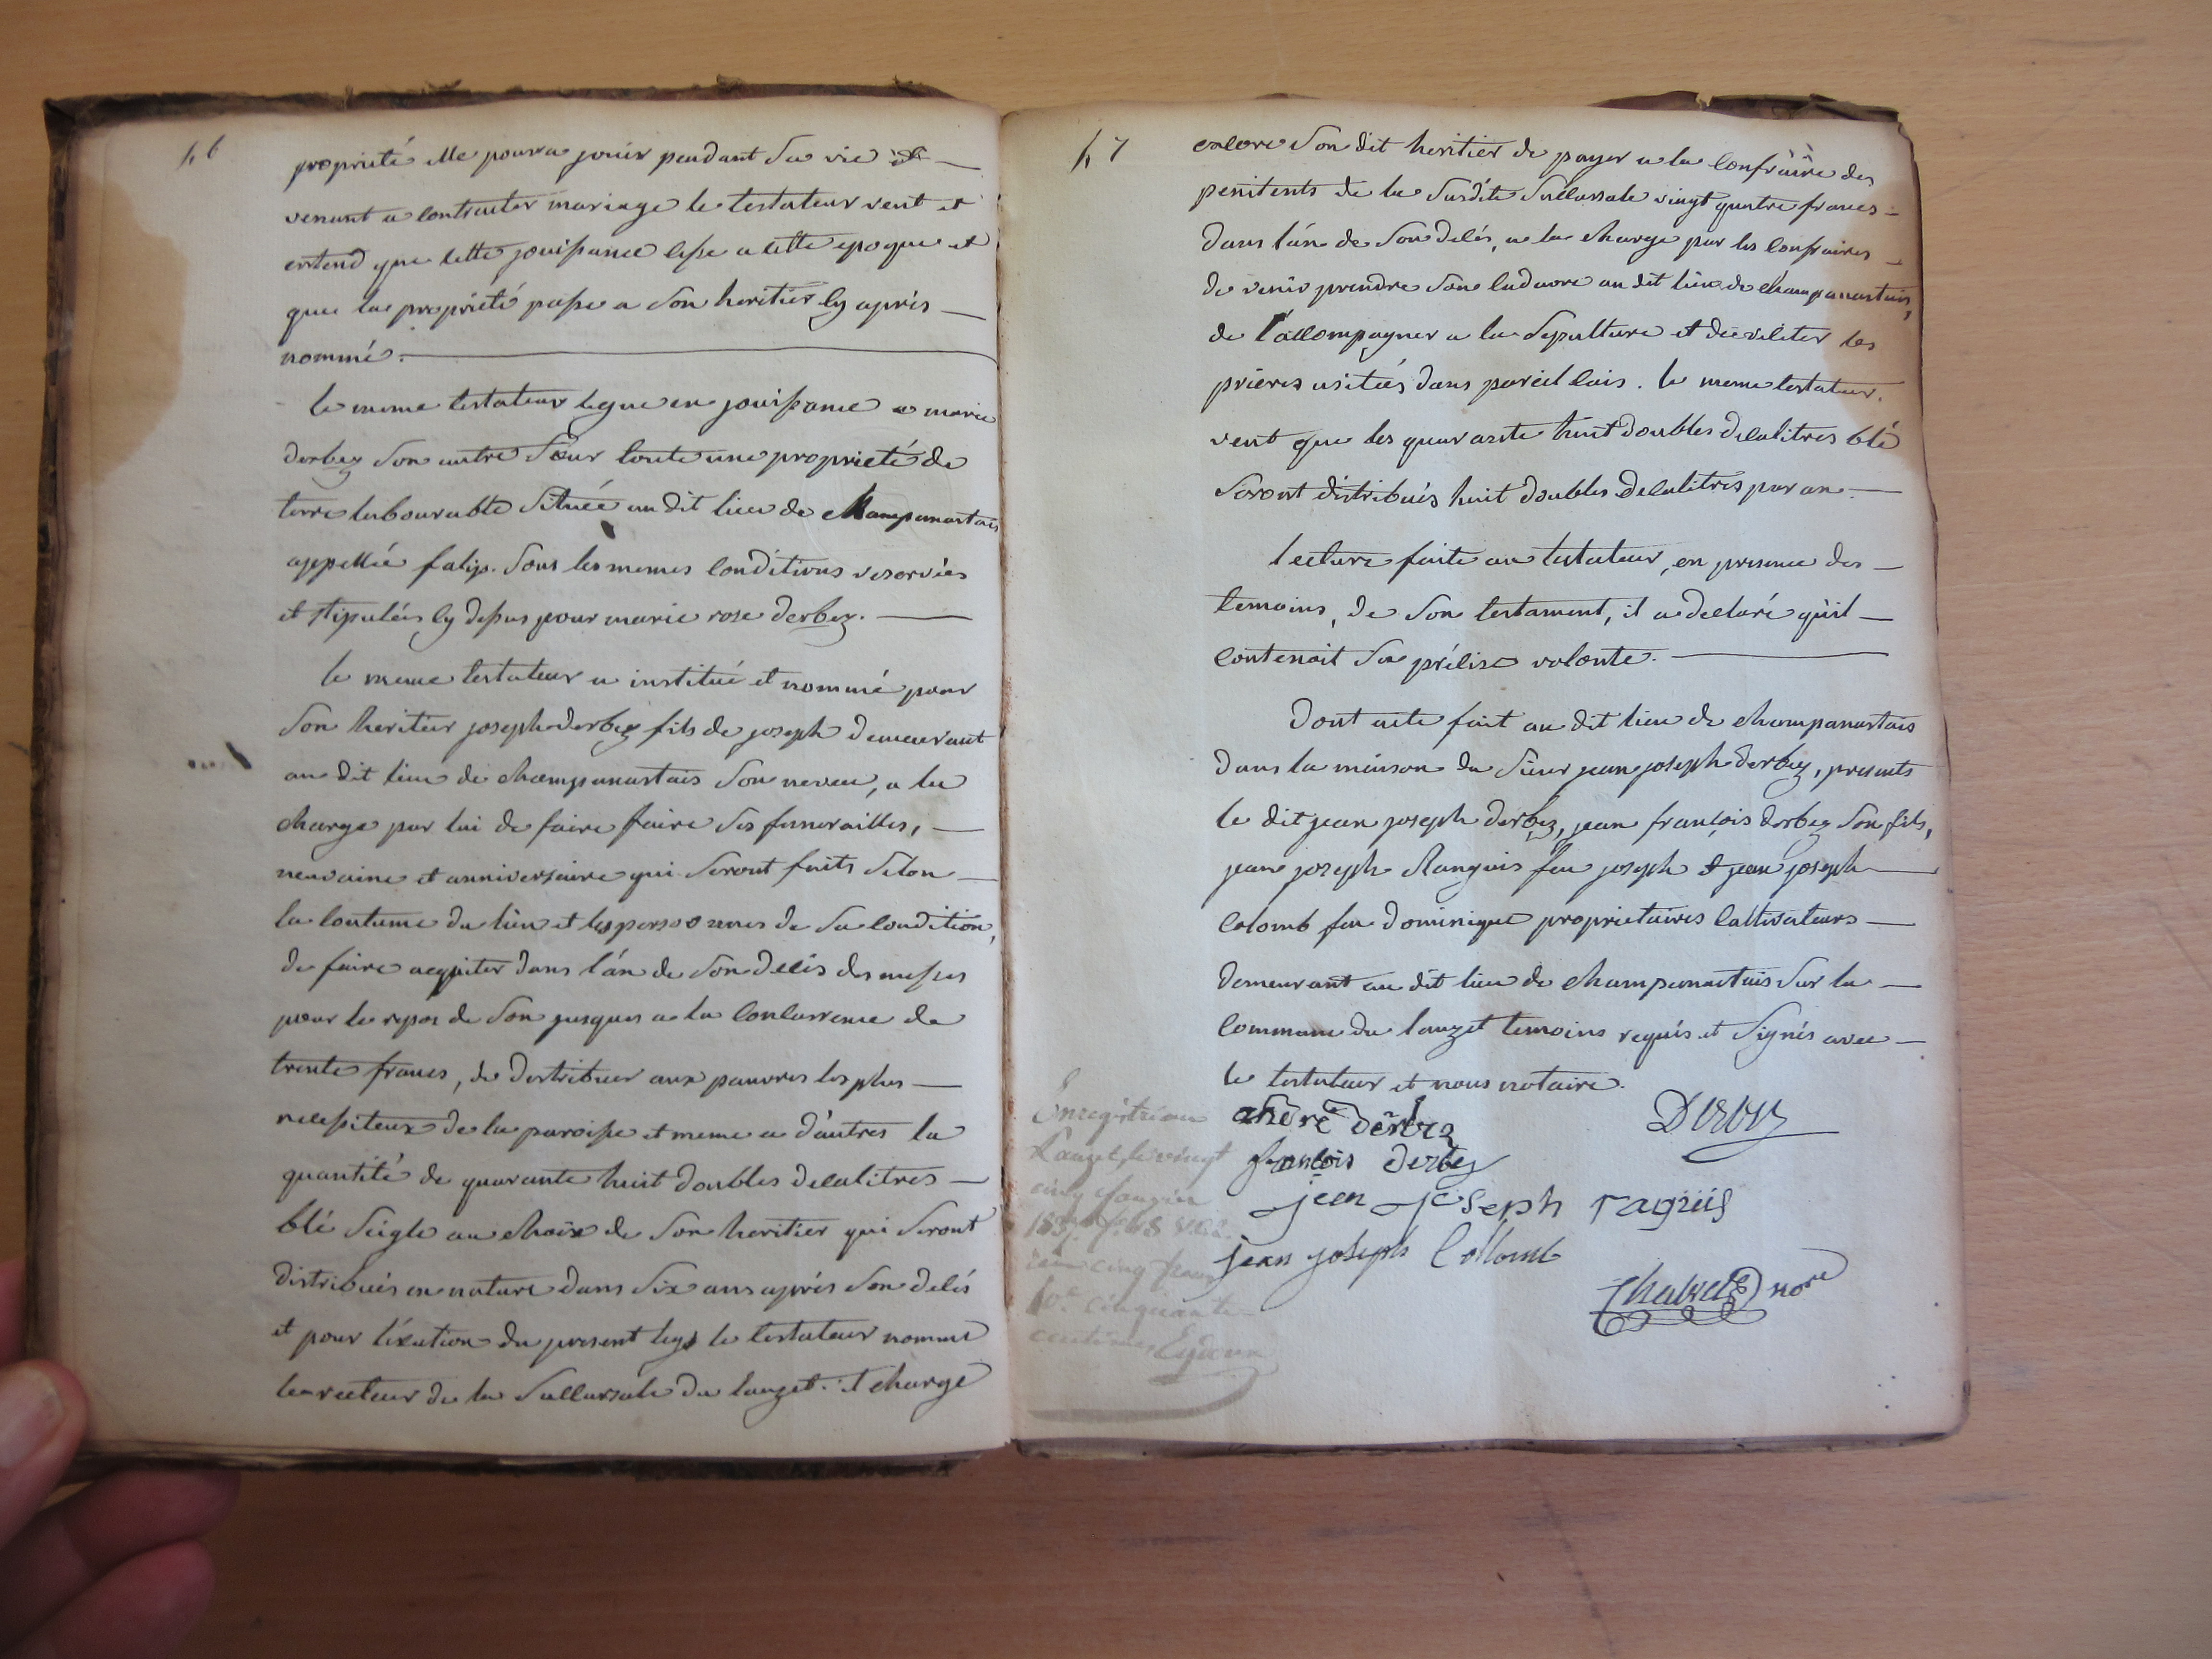 46
propriété elle pourra jouir pendant sa vie et
venant a contracter mariage le testateur veut et
entend que cette jouissance cesse a cette epoque et
que la propriété passe a son heritier cy aprés
nommé.
le meme testateur legue en jouissance a marie
derbez son autre sœur toute une propriété de
terre labourable située au dit lieu de champanastais
appellée fatijs. sous les memes conditions reservées
et stipulées cy dessus pour marie rose derbez.
le meme testateur a institué et nommé pour
son heritier joseph derbez fils de joseph demeurant
au dit lieu de champanastais son neveu, a la
charge par lui de faire faire ses funerailles,
neuvaine et anniversaire qui seront faits selon
la coutume du lieu et les personnes de sa condition,
de faire acquiter dans l'án de son décés des messes
pour le repos de son jusques a la concurrence de
trente francs, de distribuer aux pauvres les plus
necessiteux de la paroisse et meme a d'autres la
quantité de quarante huit doubles decalitres
blé seigle au choix de son heritier qui seront
distribués en nature dans six ans aprés son décés
et pour l'éxution du present legs le testateur nomme
le recteur de la succursale du lauzet. et charge
47
encore son dit heritier de payer a la confraire des
penitents de la susdite succursale vingt quatre francs
dans l'án de son decés, a la charge par les confraires
de venir prendre son cadavre au dit lieu de champanastais,
de l'accompagner a la sepulture et de reciter les
priéres usitées dans pareil cais. le meme testateur.
veut que les quarante huit doubles decalitres blé
seront distribués huit doubles decalitres par an.
lecture faite au testateur, en presence des
temoins, de son testament, il a declaré qu'il
contenoit sa précise volonte.
dont acte fait au dit lieu de champanastais
dans la maison du sieur jean joseph derbez, presents
le dit jean joseph derbez, jean françois derbez son fils,
jean joseph Ranguis feu joseph et jean joseph
colomb feu dominique proprietaires cultivateurs
demeurant au dit lieu de champanastais sur la
commune du lauzet temoins requis et signés avec
le testateur et nous notaire.
andré derbez Derbez
françois derbez
jean joseph raguis
jean joseph Collomb
no.re
Enregistré au
Lauzet, le vingt
cinq
cinq francs
10.e cinquante
centimes